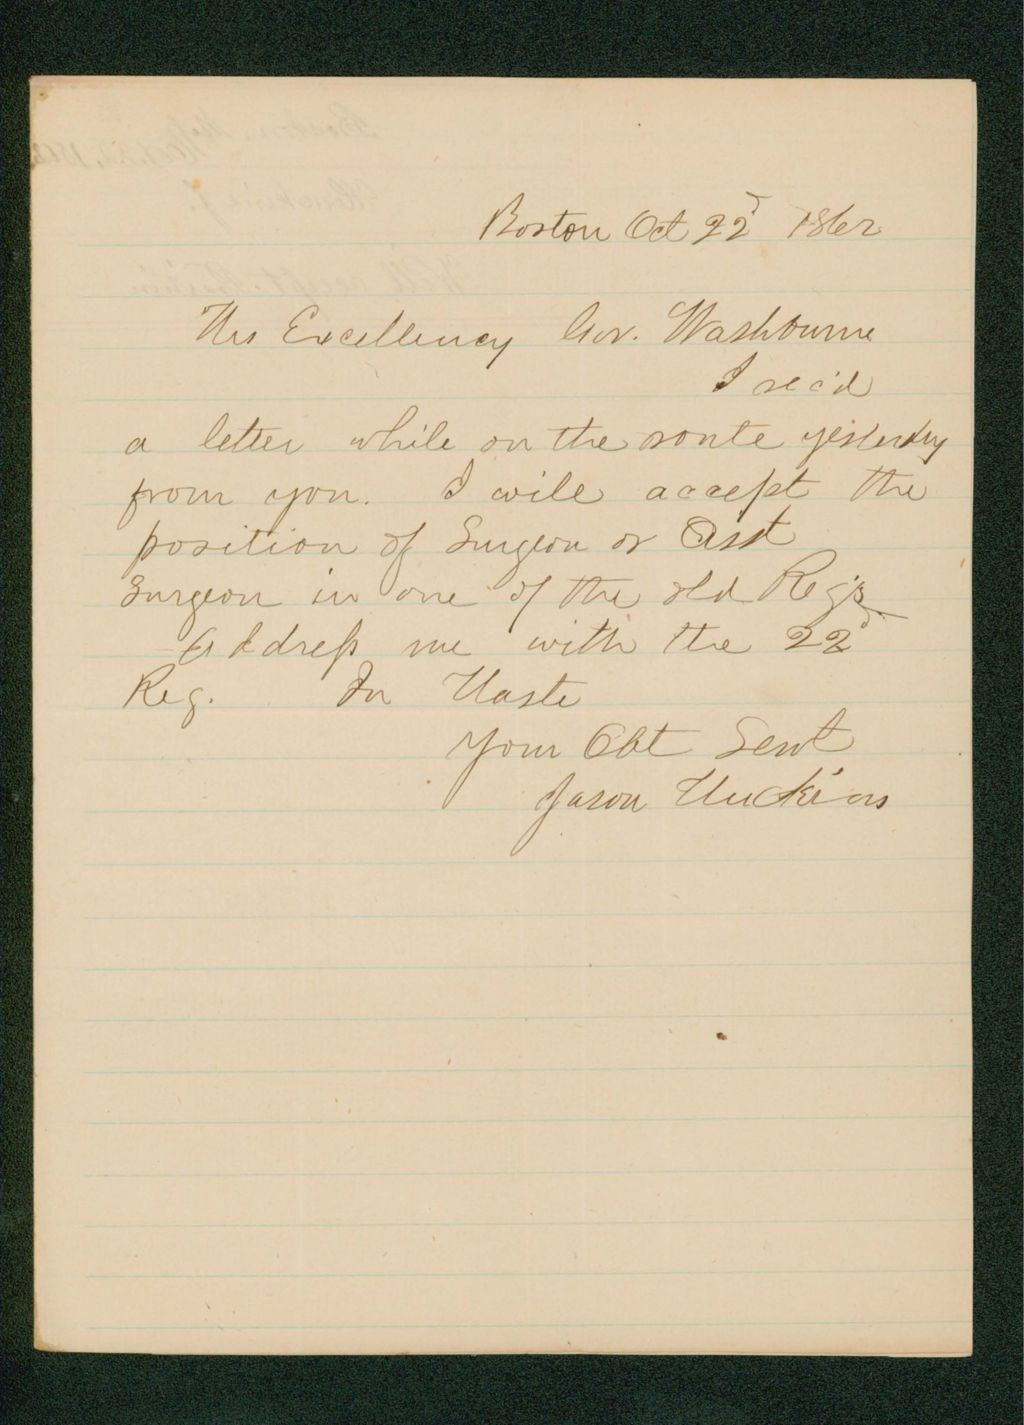 Boston Oct 22d 1862
His Excellency Gov. Washburne
I rec'd
a letter while on the route yesterday
from you. I will accept the
position of Surgeon or Asst
Surgeon in one of the old Reg's
Address me with the 22d
Reg. In Haste
Your Obt Servt
Jason Huckins